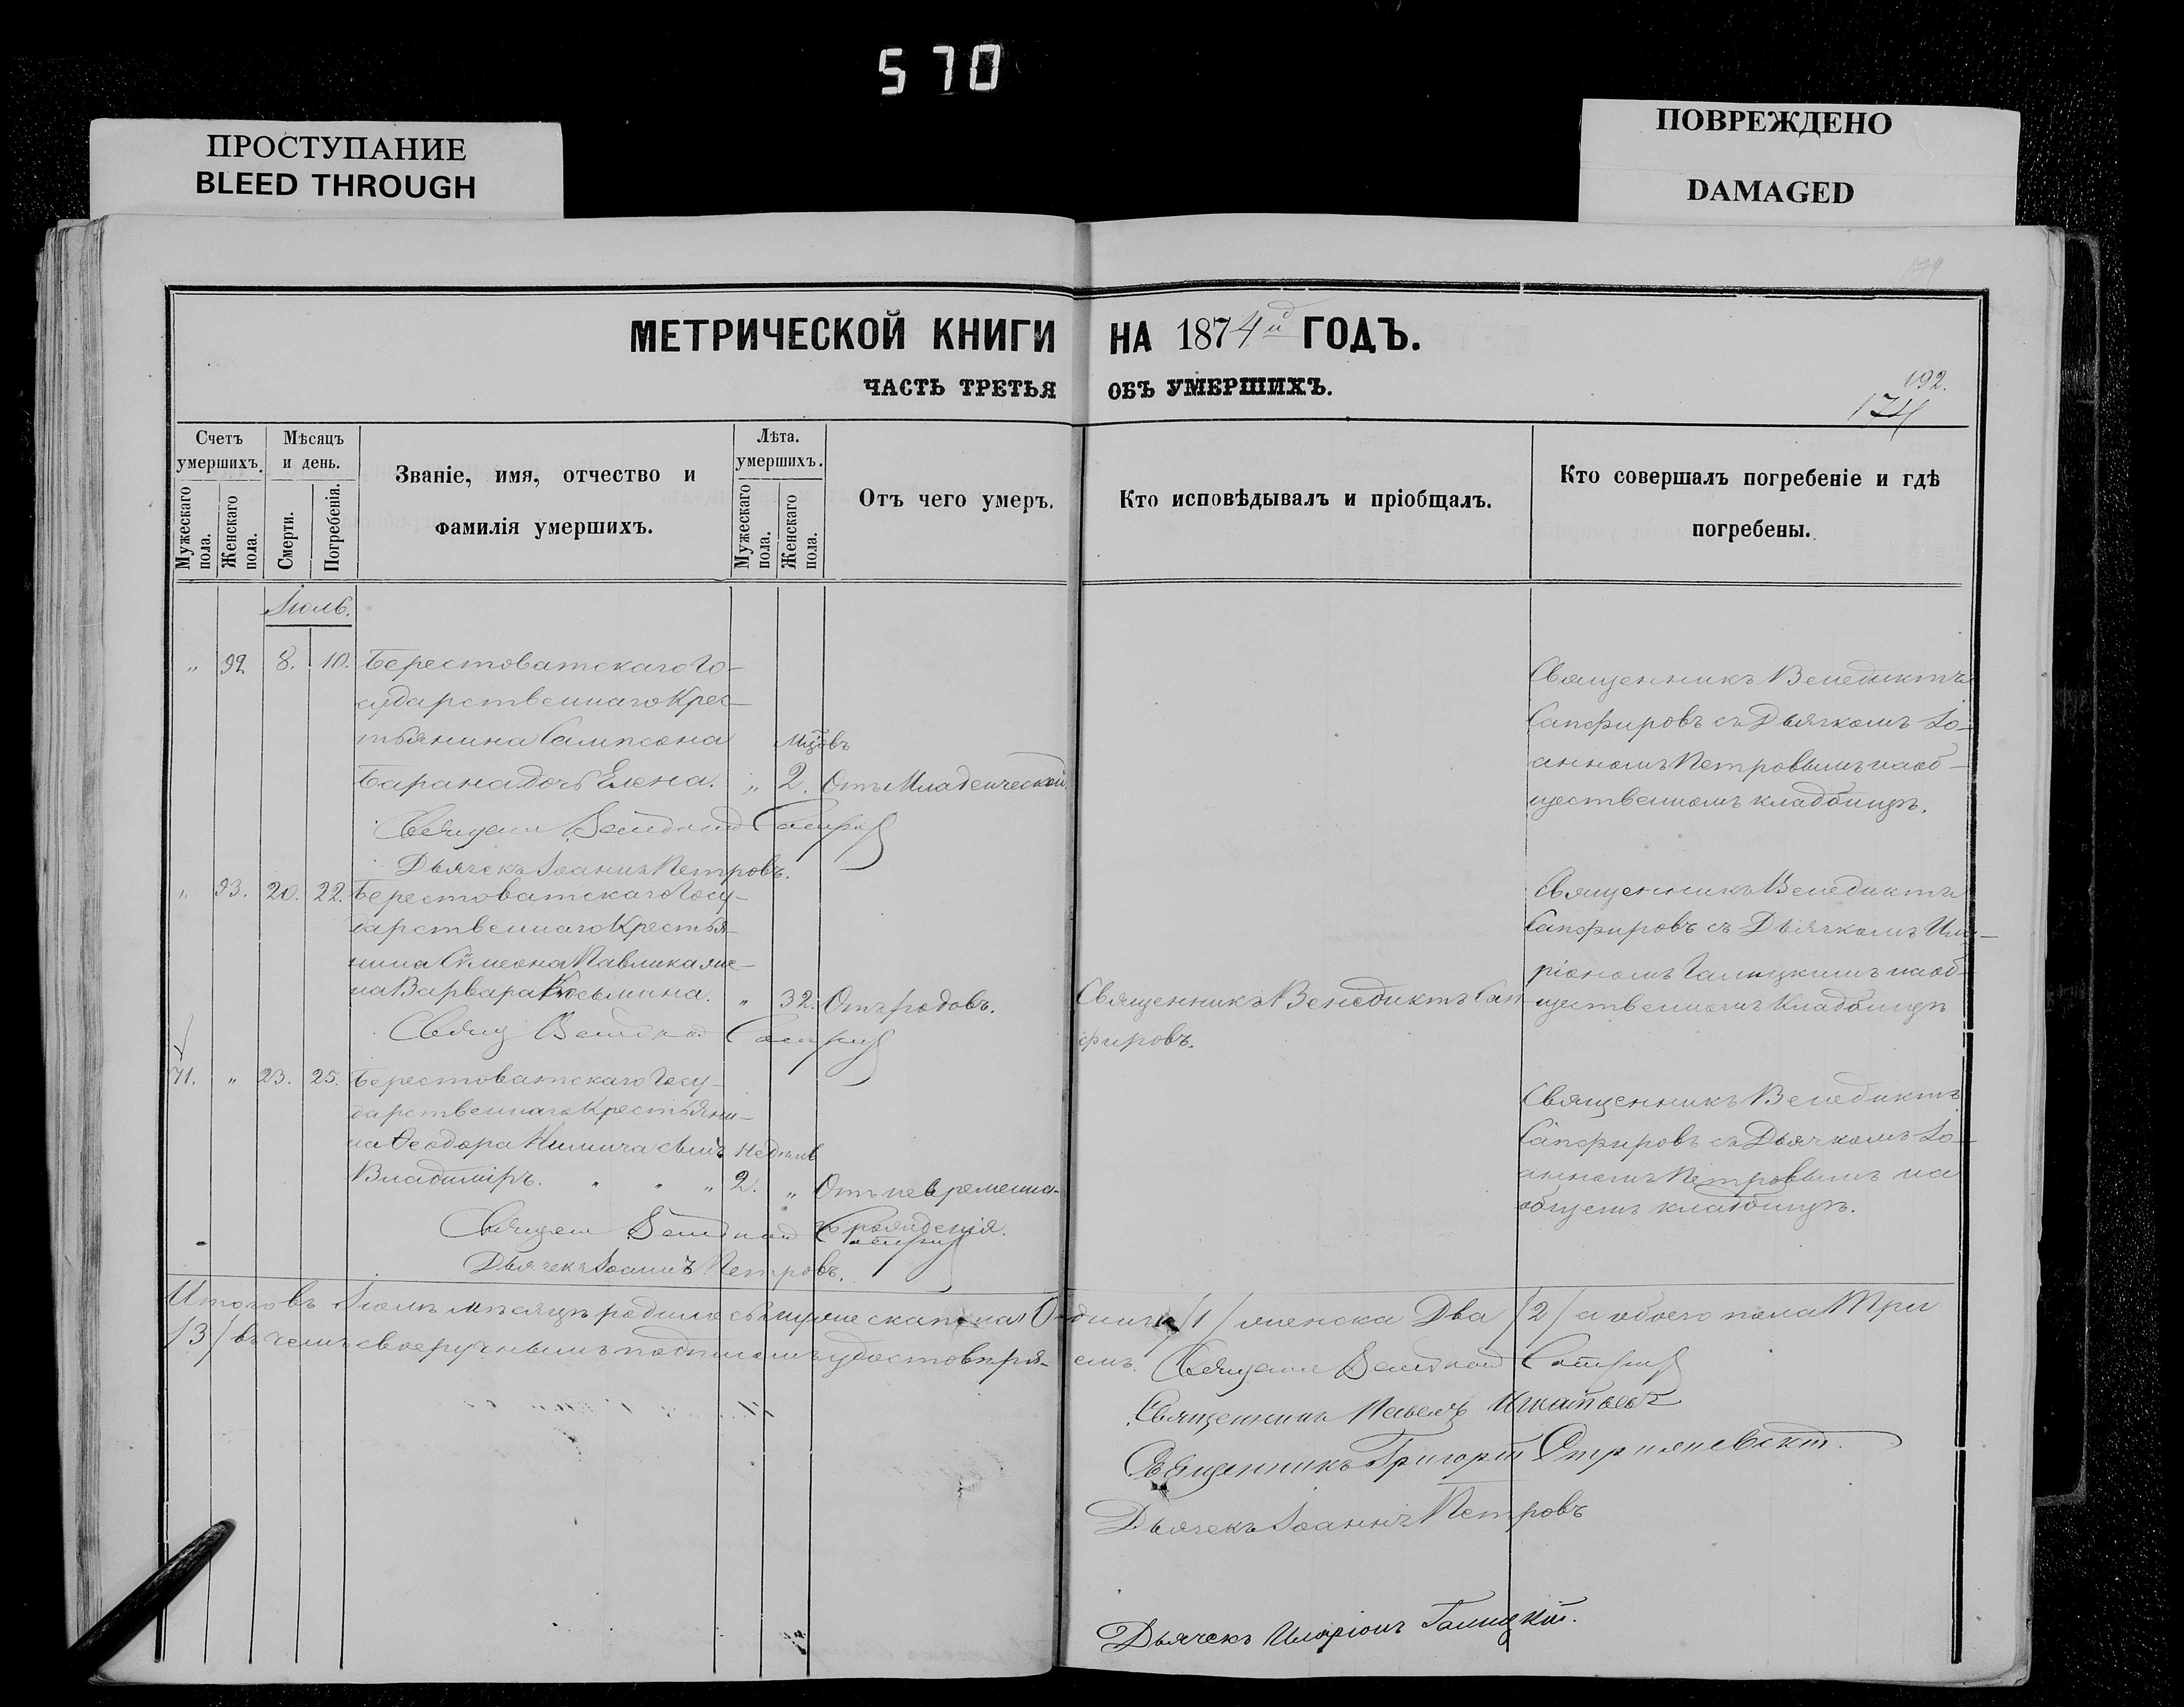 570
ПРОСТУПАНИЕ
BLEED THROUGH
ПОВРЕЖДЕНО
DAMAGED
МЕТРИЧЕСКОЙ КНИГИ НА 1874й ГОДЪ.
ЧАСТЬ ТРЕТЬЯ ОБЪ УМЕРШИХЪ.
192.
174
Счетъ умершихъ.
Мужескаго пола.
Женскаго пола.
Мѣсяцъ и день.
Смерти.
Погребенія.
Званіе, имя, отчество и
фамилія умершихъ.
Лѣта. умершихъ.
Мужескаго пола.
Женскаго пола.
Отъ чего умеръ.
Кто исповѣдывалъ и пріобщалъ.
Кто совершалъ погребеніе и гдѣ
погребены.
Іюль.
„ 92 8. 10. Берестоватскаго Го-
сударственнаго Крес-
тьянина Сампсона
Барана дочь Елена.
Мцовъ
„ 2. Отъ Младенческой
Священникъ Венедиктъ
Сапфировъ съ Дьячкомъ Іо-
анномъ Петровымъ на об-
щественномъ кладбищѣ.
Дьячекъ Іоаннъ Петровъ.
„ 93. 20. 22. Берестоватскаго Госу-
дарственнаго Крестья-
нина Сѵмеона Павлика же-
на Варвара Косьмина. „ 32. Отъ родовъ.
Священникъ Венедиктъ Сап-
фировъ.
Священникъ Венедиктъ
Сапфировъ съ Дьячкомъ Ила-
ріономъ Галицкимъ на об-
щественномъ Кладбищѣ
71. „ 23. 25. Берестоватскаго Госу-
дарственнаго Крестьяни-
на Ѳеодора сынъ
Владиміръ. „ „ „
Недѣль
2. „ Отъ невременна-
го рожденія.
Священникъ Венедиктъ
Сапфировъ съ Дьячкомъ Іо-
анномъ Петровымъ на
общемъ кладбищѣ.
Дьячекъ Іоаннъ Петровъ.
Итого въ Іюлѣ мѣсяцѣ родилось мужеска пола Одинъ /1/ женска Два /2/ а обоего пола Три
/3/ въ чемъ своеручнымъ подписомъ удостовѣря-емъ.
Священникъ Павелъ Игнатьевъ
Священникъ Григорій
Дьячекъ Іоаннъ Петровъ
Дьячекъ Иларіонъ Галицкій.